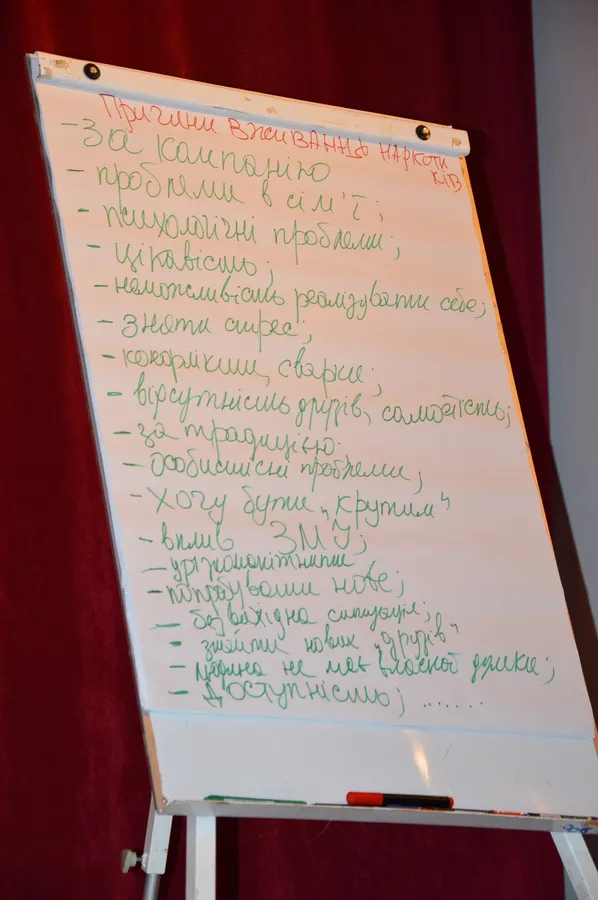 Причини вживання наркоти
ків
- за компанію
- проблеми в сім'ї;
- психологічні проблеми;
- цікавість;
- неможливість реалізувати себе;
- зняти стрес;
- конфлікти, сварки;
- відсутність друзів, самотність;
- за традицією.
- особистісні проблеми;
- хочу бути „крутим"
- вплив ЗМУ;
- урізноманітнити
- попробувати нове;
- безвихідна ситуація;
- знайти нових „друзів"
- людина не має власної думки;
- Доступність; ......